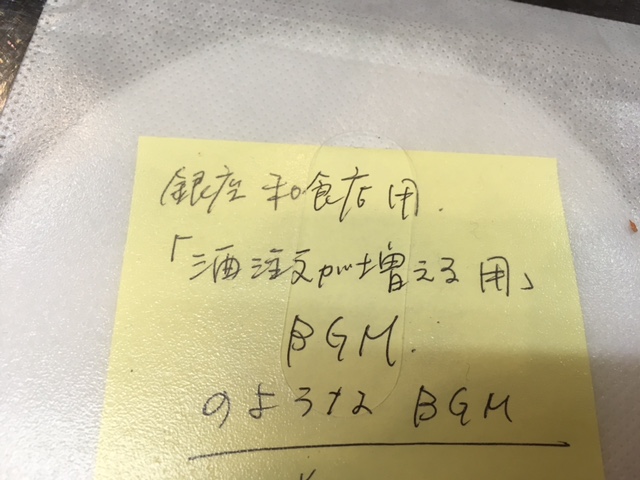 銀座和食店用.
「酒注文が増える用」
BGM.
のような BGM